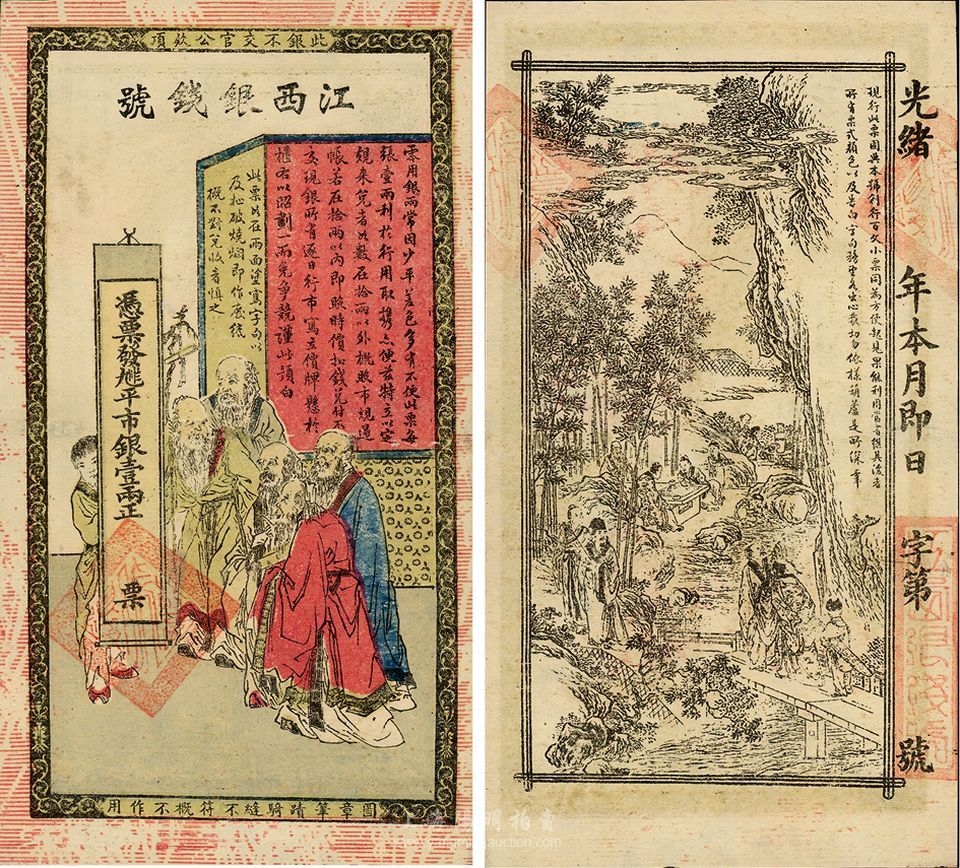 此銀不交官公欵項
江西銀錢號
票用銀兩常因少平差色多有不便此票每
張壹兩利於行用取攜亦便茲特立以定
規來兌者如數在拾兩以外概照市規過
帳若在拾兩以內即照時價扣錢兌付不
交現銀所有逐日行市寫立價牌懸於
櫃右以昭劃一而免爭競謹此預白
此票如在兩面塗寫字句以
及扯破燒爛即作廢紙
概不對兌收者慎之
憑票發兌平市銀壹兩正
票
圖章筆蹟騎縫不符概不作用
光緒 年本月即日 字第 號
現行此票因與本號刊行百文小票同為方便起見
所有票式顏色以及告白字句